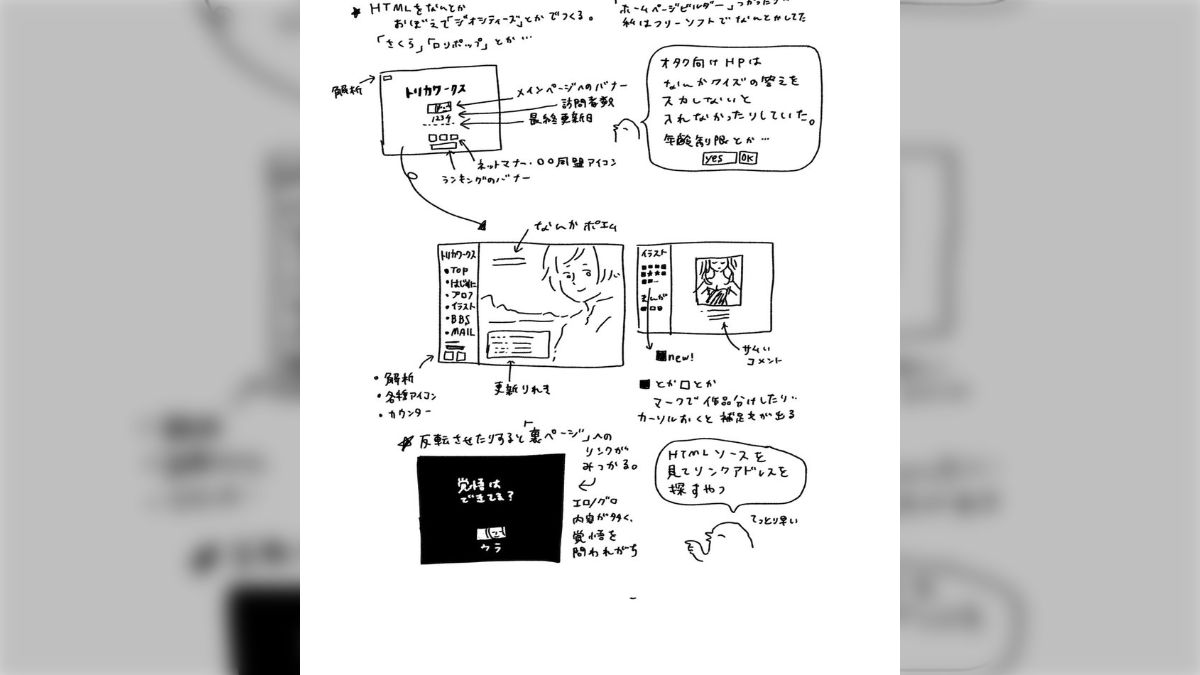 HTMLをなんとか
おぼえて「ジオシティーズ」とかでつくる。
「さくら」「ロリポップ」とか…
「ホームページビルダー」つかったり…
私はフリーソフトでなんとかしてた
解析
トリカワークス
1234
メインページへのバナー
訪問者数
最終更新日
ネットマナー・〇〇同盟アイコン
ランキングのバナー
オタク向けHPは
なんかクイズの答えを
入力しないと
入れなかったりしていた。
年齢制限とか…
yes OK
なんかポエム
トリカワークス
・TOP
・はじめに
・プロフ
・イラスト
・BBS
・MAIL
・解析
・各種アイコン
・カウンター
更新りれき
イラスト
まんが
new!
サムい
コメント
■とか□とか
マークで作品分けしたり…
カーソルおくと補足文が出る
反転させたりすると「裏ページ」への
リンクが
みつかる。
覚悟は
できてる?
ウラ
エロ/グロ
内容が多く、
覚悟を
問われがち
HTMLソースを
見てリンクアドレスを
探すやつ
てっとり早い